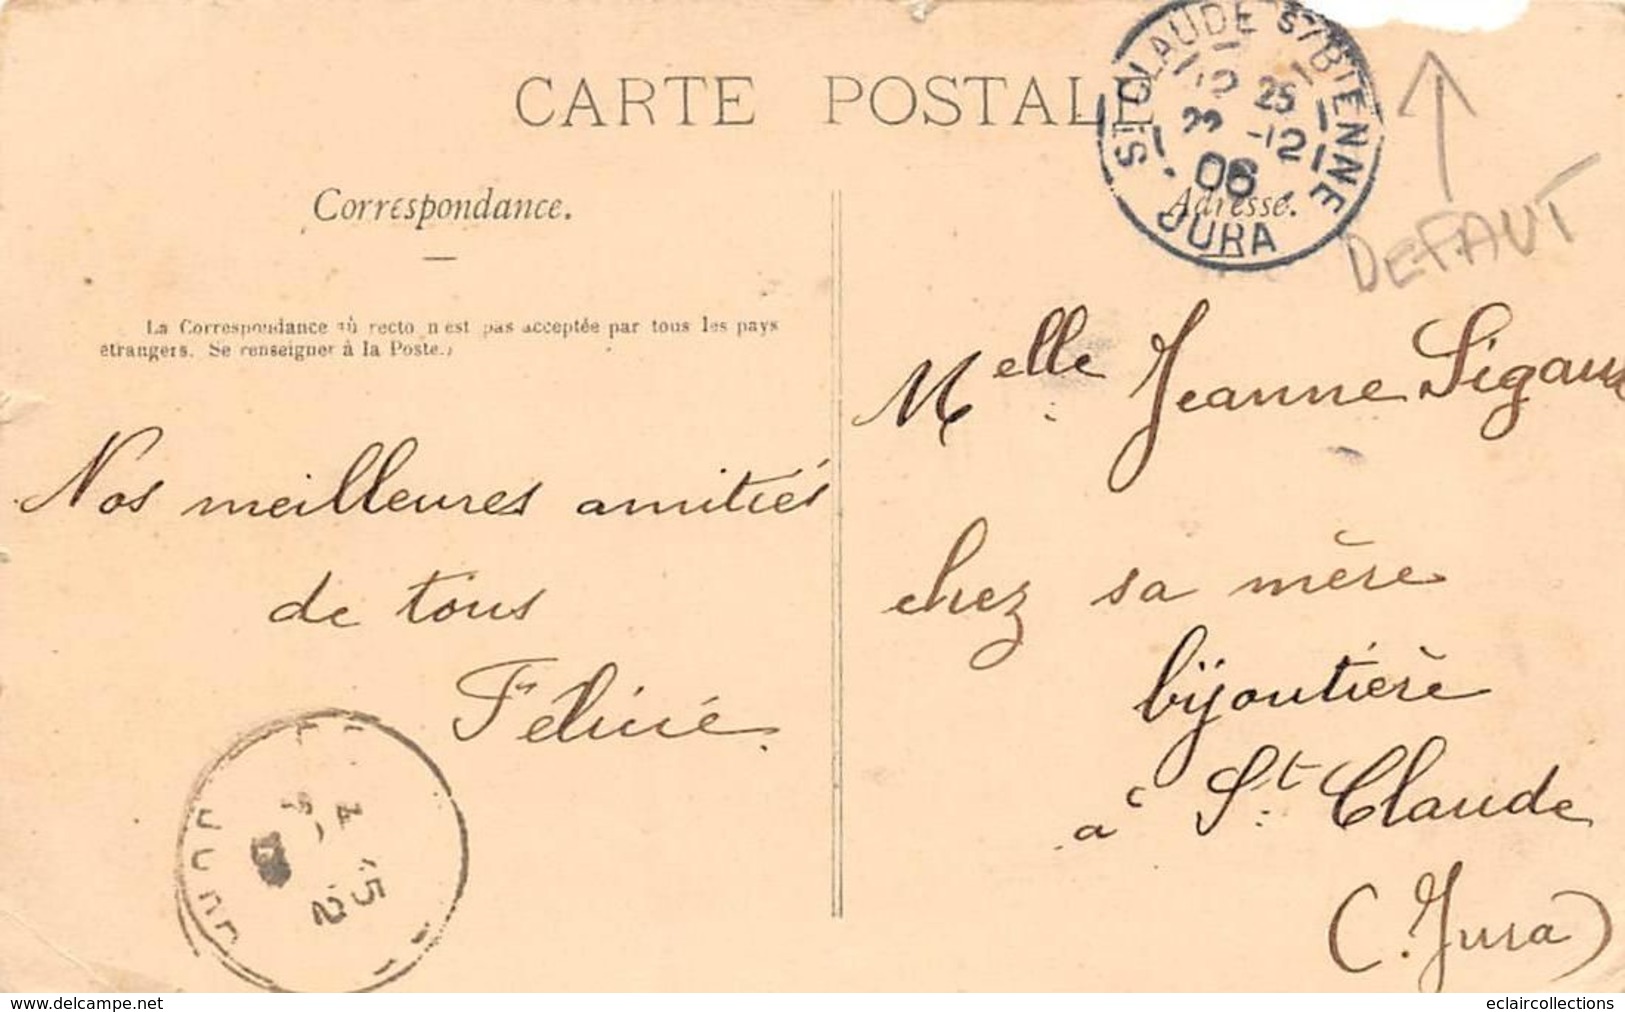 CARTE POSTALE
ST CLAUDE S/BIENNE
25
22 -12
06
JURA
Correspondance.
Adresse.
DEFAUT
La Correspondance au recto n'est pas acceptée par tous les pays
étrangers. Se renseigner à la Poste.)
Melle Jeanne Sigaux
Nos meilleures amitiés
de tous
Félicie.
chez sa mère
bijoutière
à St Claude
(Jura)
www.delcampe.net
eclaircollections